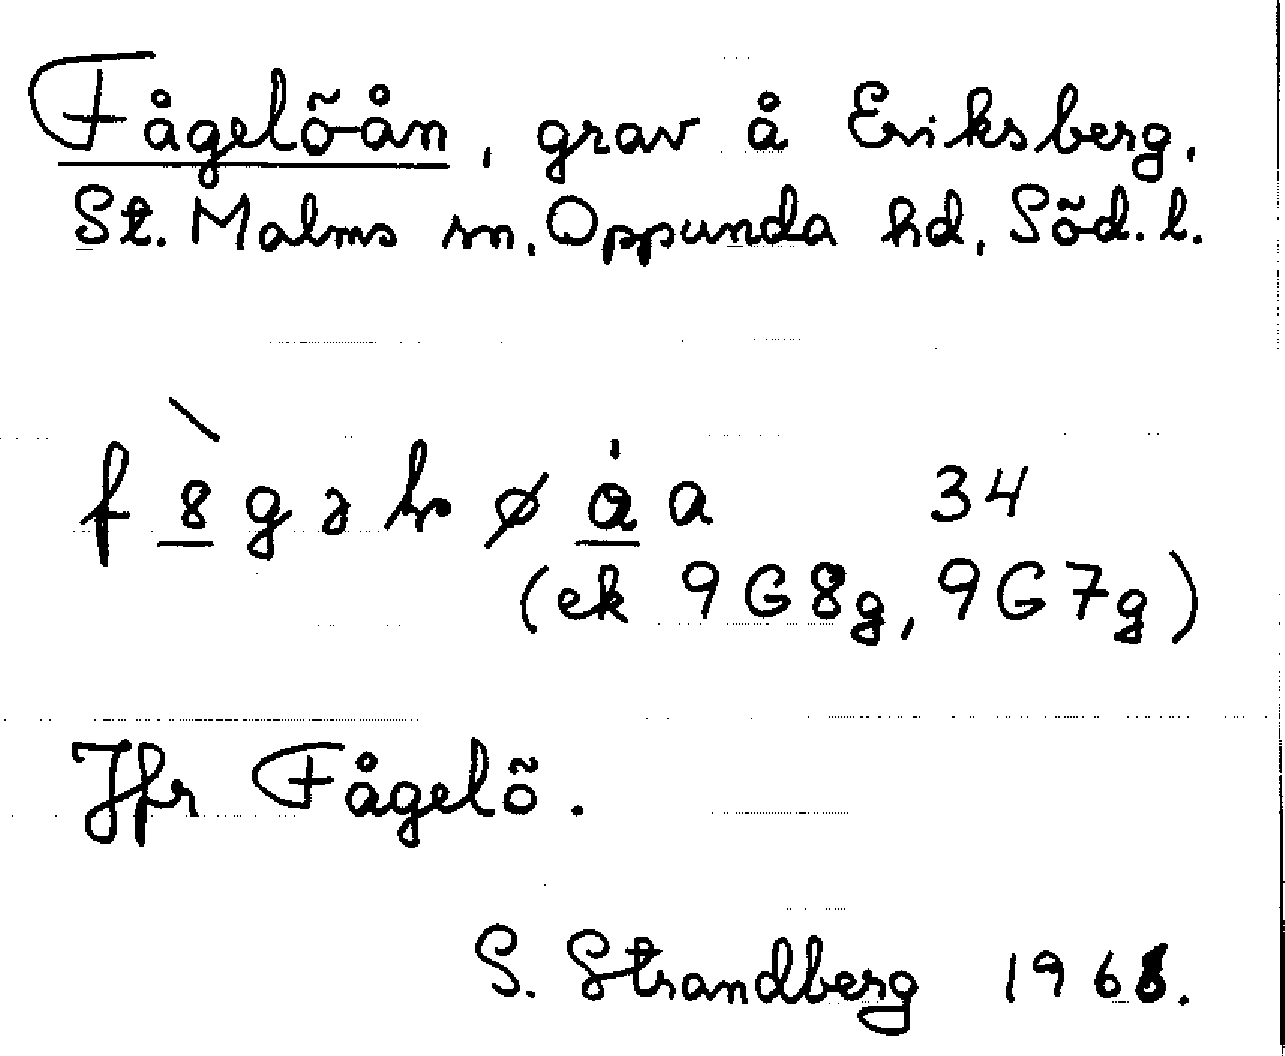 Fågelö-ån, grav å Eriksberg,
St. Malms sn, Oppunda hd, Söd. l.
34
(ek 9G8g, 9G7g)
Jfr Fågelö.
S. Strandberg